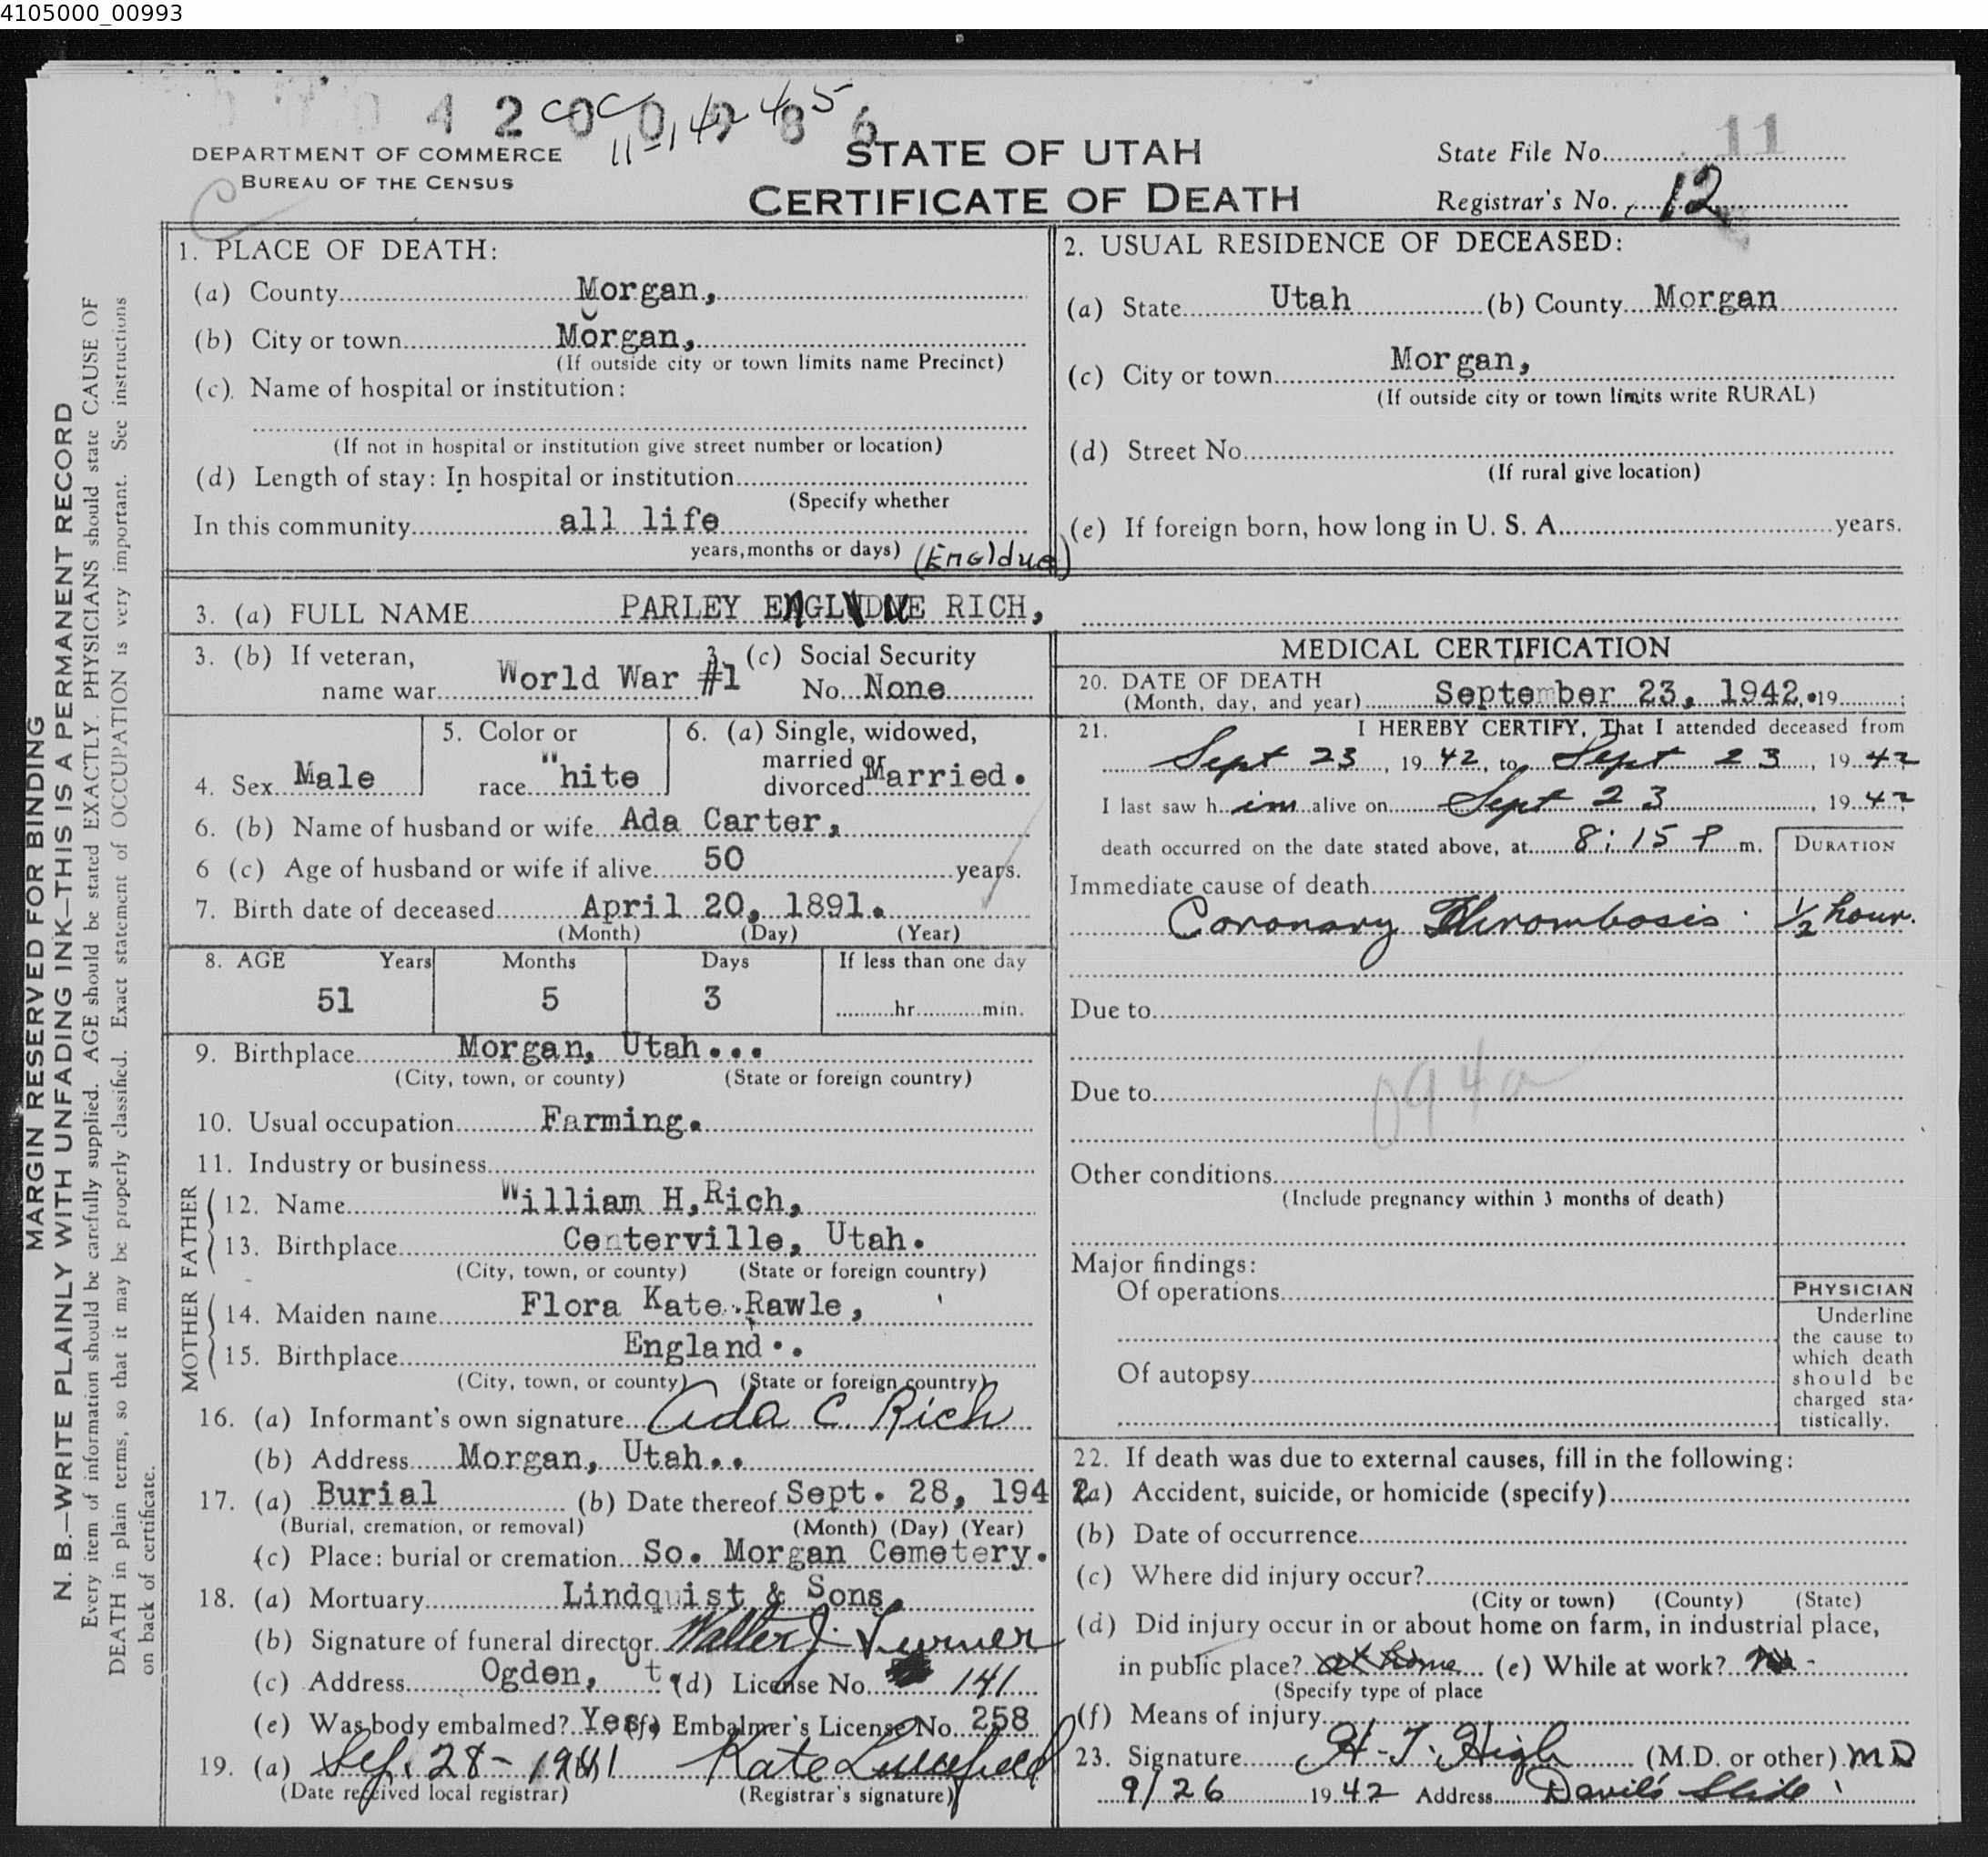 4105000_00993
4 2 0 0 0 9 8 6
11-14-45
DEPARTMENT OF COMMERCE
BUREAU OF THE CENSUS
STATE OF UTAH
CERTIFICATE OF DEATH
State File No. 11
Registrar's No. 12
MARGIN RESERVED FOR BINDING
N. B.—WRITE PLAINLY WITH UNFADING INK—THIS IS A PERMANENT RECORD
Every item of information should be carefully supplied. AGE should be stated EXACTLY. PHYSICIANS should state CAUSE OF
DEATH in plain terms, so that it may be properly classified. Exact statement of OCCUPATION is very important. See instructions
on back of certificate.
1. PLACE OF DEATH:
(a) County Morgan,
(b) City or town Morgan,
(If outside city or town limits name Precinct)
(c) Name of hospital or institution:
(If not in hospital or institution give street number or location)
(d) Length of stay: In hospital or institution
(Specify whether
In this community all life
years, months or days) (Engldue)
2. USUAL RESIDENCE OF DECEASED:
(a) State Utah (b) County Morgan
(c) City or town Morgan,
(If outside city or town limits write RURAL)
(d) Street No.
(If rural give location)
(e) If foreign born, how long in U. S. A. years.
3. (a) FULL NAME PARLEY ENGLDUE RICH,
3. (b) If veteran, name war World War #1
3. (c) Social Security No. None
4. Sex Male
5. Color or race White
6. (a) Single, widowed, married or divorced Married.
6. (b) Name of husband or wife Ada Carter,
6 (c) Age of husband or wife if alive 50 years.
7. Birth date of deceased April 20, 1891.
(Month) (Day) (Year)
8. AGE Years Months Days If less than one day
51 5 3 hr. min.
9. Birthplace Morgan, Utah...
(City, town, or county) (State or foreign country)
10. Usual occupation Farming.
11. Industry or business
FATHER
12. Name William H, Rich,
13. Birthplace Centerville, Utah.
(City, town, or county) (State or foreign country)
MOTHER
14. Maiden name Flora Kate Rawle,
15. Birthplace England..
(City, town, or county) (State or foreign country)
16. (a) Informant's own signature Ada C. Rich
(b) Address Morgan, Utah..
17. (a) Burial (b) Date thereof Sept. 28, 1942
(Burial, cremation, or removal) (Month) (Day) (Year)
(c) Place: burial or cremation So. Morgan Cemetery.
18. (a) Mortuary Lindquist & Sons,
(b) Signature of funeral director Walter J. Turner
(c) Address Ogden, Ut. (d) License No. 141
(e) Was body embalmed? Yes. (f) Embalmer's License No. 258
19. (a) Sep. 28- 1941 Kate
(Date received local registrar) (Registrar's signature)
MEDICAL CERTIFICATION
20. DATE OF DEATH
(Month, day, and year) September 23, 1942. 19 ;
21. I HEREBY CERTIFY, That I attended deceased from
Sept 23, 19 42, to Sept 23, 19 42
I last saw h im alive on Sept 23, 19 42
death occurred on the date stated above, at 8:15 P m.
DURATION
Immediate cause of death
Coronary Thrombosis 1/2 hour.
Due to
Due to
094a
Other conditions
(Include pregnancy within 3 months of death)
Major findings:
Of operations
Of autopsy
PHYSICIAN
Underline
the cause to
which death
should be
charged sta-
tistically.
22. If death was due to external causes, fill in the following:
(a) Accident, suicide, or homicide (specify)
(b) Date of occurrence
(c) Where did injury occur?
(City or town) (County) (State)
(d) Did injury occur in or about home on farm, in industrial place,
in public place? at home (e) While at work? No -
(Specify type of place
(f) Means of injury
23. Signature H. T. High (M.D. or other) MD
9/26 19 42 Address Devil's Slide